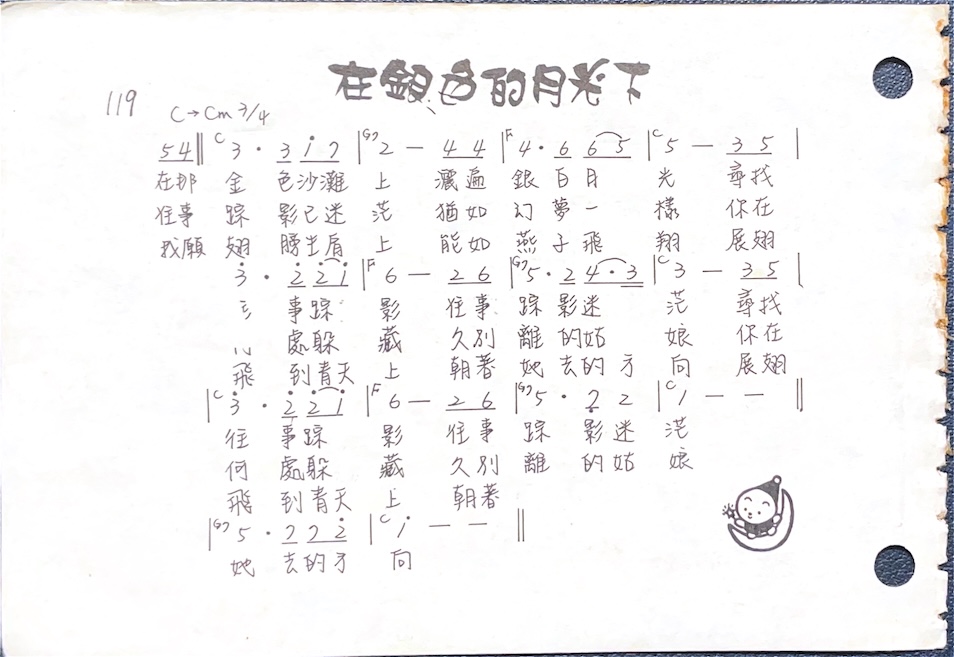 在銀色的月光下
119
C→Cm 3/4
5 4 ‖ C 3 · 3 i 7 | G7 2 — 4 4 | F 4 · 6 6 5 | C 5 — 3 5 |
在那 金 色沙灘 上 灑遍 銀白月 光 尋找
往事 踪 影已迷 茫 猶如 幻夢一 樣 你在
我願 翅 膀生肩 上 能如 燕子飛 翔 展翅
3 · 2 2 i | F 6 — 2 6 | G7 5 · 2 4 · 3 | C 3 — 3 5
事踪 影 往事 踪影迷 茫 尋找
處躲 藏 久別 離的姑 娘 你在
飛 到青天 上 朝著 她去的方 向 展翅
| C 3 · 2 2 i | F 6 — 2 6 | G7 5 · 7 2 | C 1 — — ‖
往 事踪 影 往事 踪 影迷 茫
何 處躲 藏 久別 離 的姑 娘
飛 到青天 上 朝著
| G7 5 · 7 7 2 | C i — — ‖
她 去的方 向